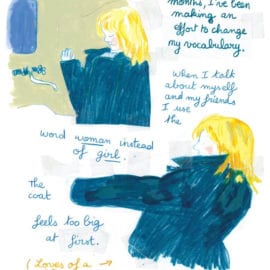 months, I've been
making an
effort to change
my vocabulary.
when I talk
about myself
and my friends
I use
the
word woman instead
of girl.
The
coat
feels too big
at first.
(Loves of a →